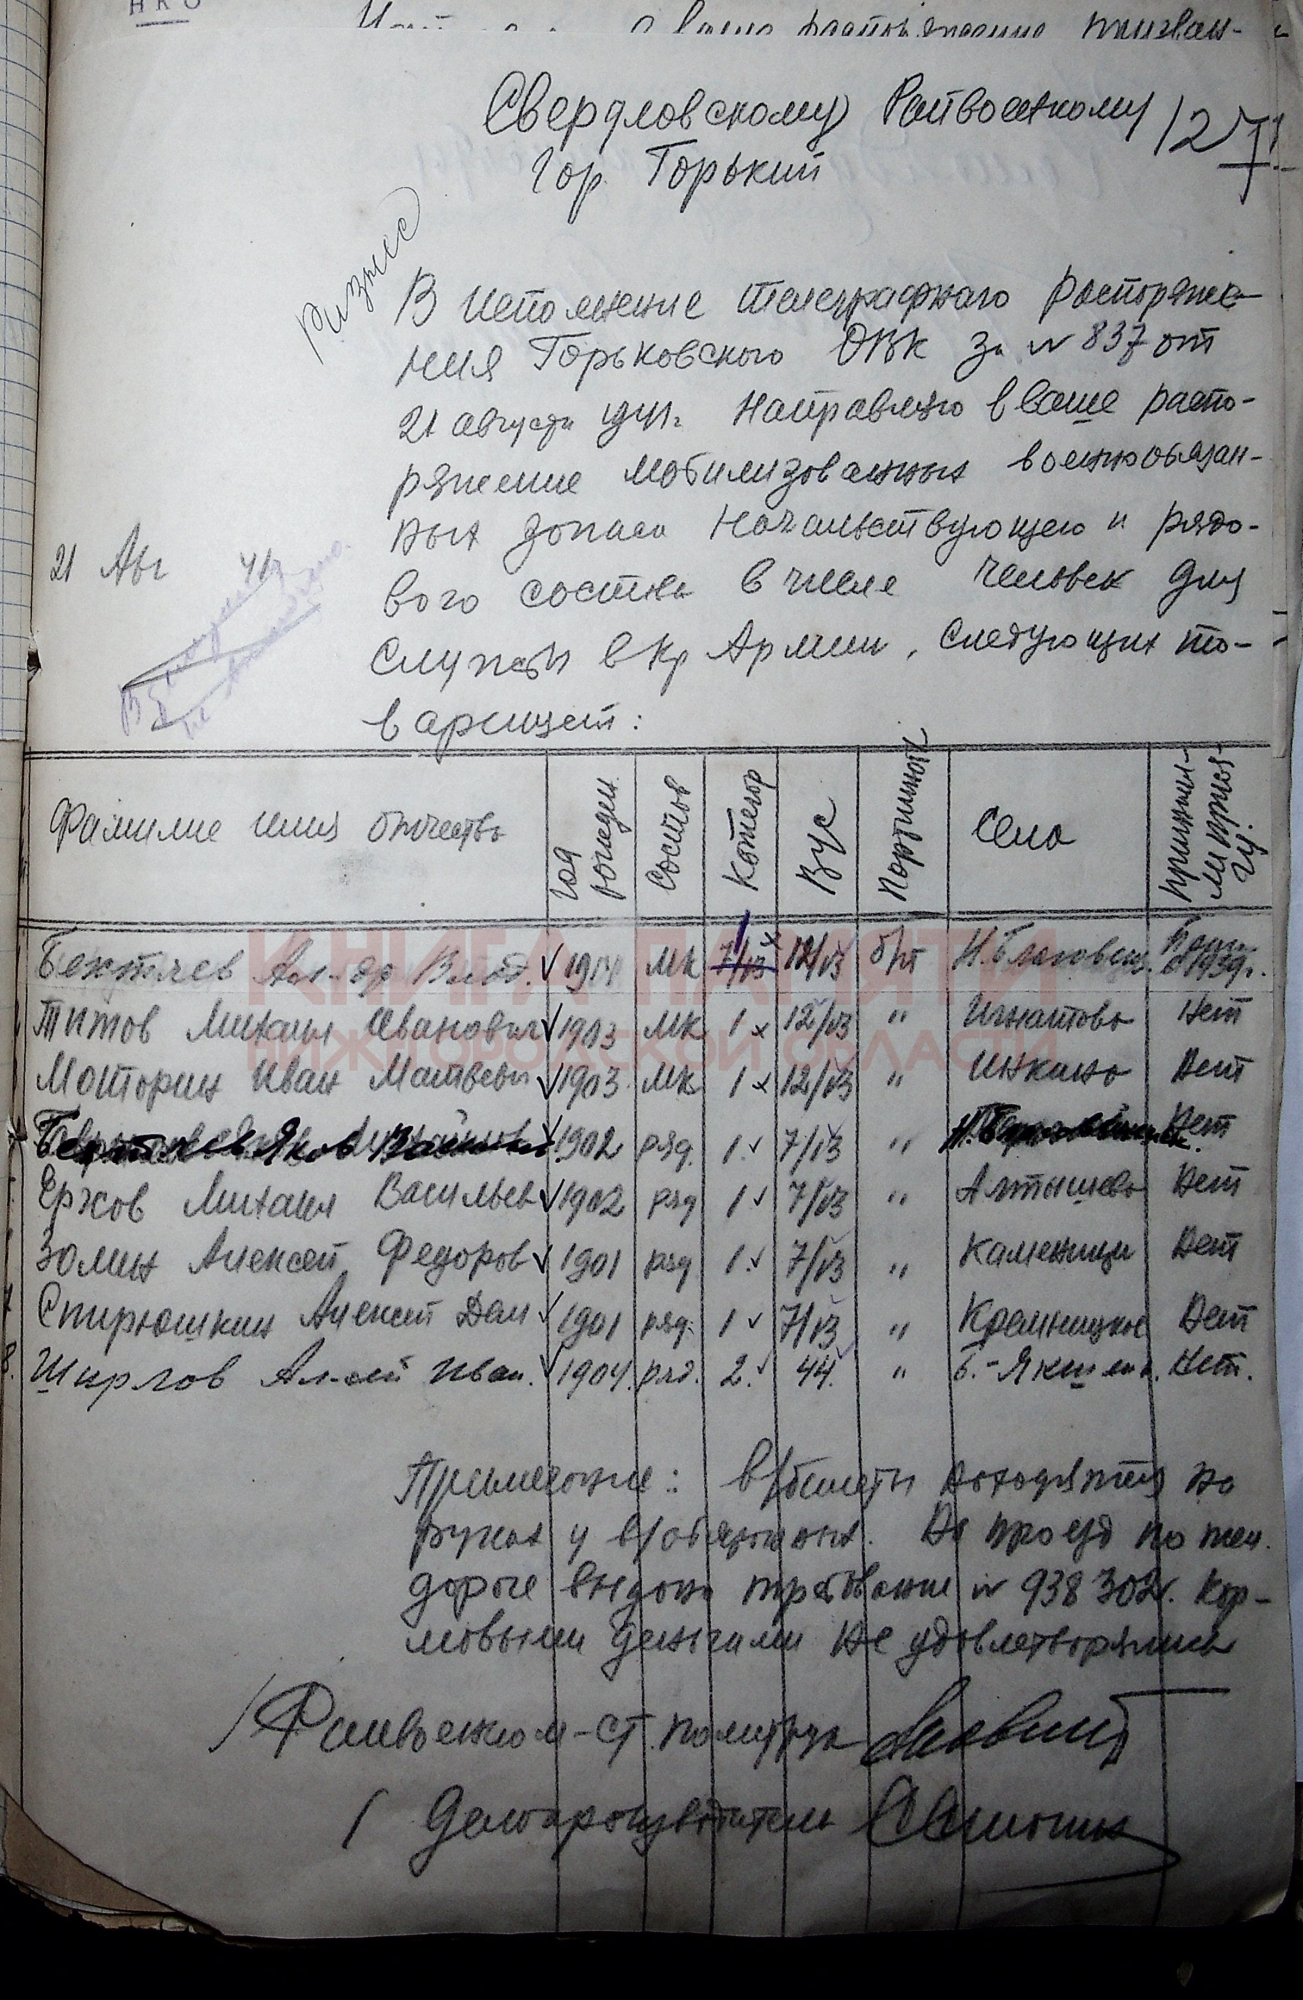 НКО
в ваше распоряжение призван-
Свердловскому Райвоенкому
127
Гор. Горький
В исполнение телеграфного распоряже-
ния Горьковского ОВК за № 837 от
21 августа 1941г. направляю в ваше распо-
ряжение мобилизованных военнообязан-
ных запаса начальствующего и рядо-
21 Авг 41г
вого состава в числе человек для
службы в Кр Армии, следующих то-
варищей:
Фамилие имя отчество
Год рожден
Состав
Категор
ВУС
Партийность
Село
Бектяев Ал-др Влад. 1904 мк 1 12/13 б/п Н.Благовещ.
Титов Михаил Иванович 1903 мк 1 12/13 " Игнатово Нет
Моторин Иван Матвеев 1903 мк 1 12/13 " Инкино Нет
Бектяев Яков 1902 ряд. 1 7/13 " Нет
Ержов Михаил Васильев 1902 ряд 1 7/13 " Алтышево Нет
Зомин Алексей Федоров 1901 ряд 1 7/13 " Каменищи Нет
Спирюшкин Алексей Дем 1901 ряд. 1 7/13 " Кремницкое Нет
8. Ширлов Ал-ей Иван. 1904 ряд. 2. 44. " Б.-Якшень. Нет.
КНИГА ПАМЯТИ
НИЖЕГОРОДСКОЙ ОБЛАСТИ
Примечание: в/билеты находятся на
руках у в/обязанных. На проезд по жел.
дороге выдано требование № 938302. Кор-
мовыми деньгами не удовлетворялись
Райвоенком - ст. политрук
Делопроизводитель